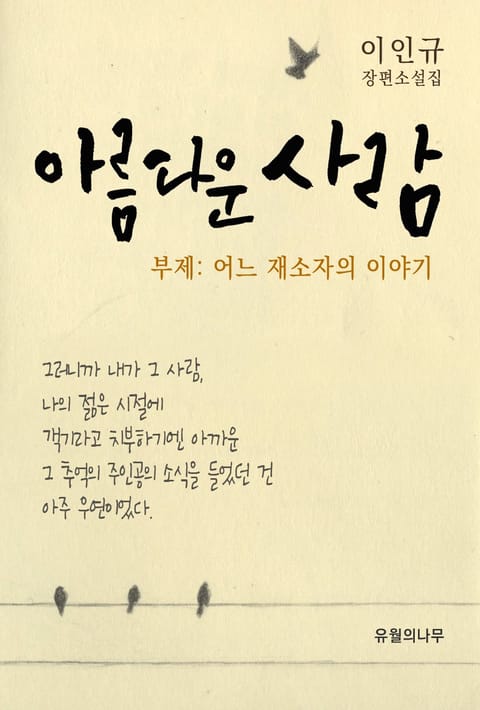 이인규
장편소설집
아름다운 사람
부제: 어느 재소자의 이야기
그러니까 내가 그 사람,
나의 젊은 시절에
객기라고 치부하기엔 아까운
그 추억의 주인공의 소식을 들었던 건
아주 우연이었다.
유월의나무